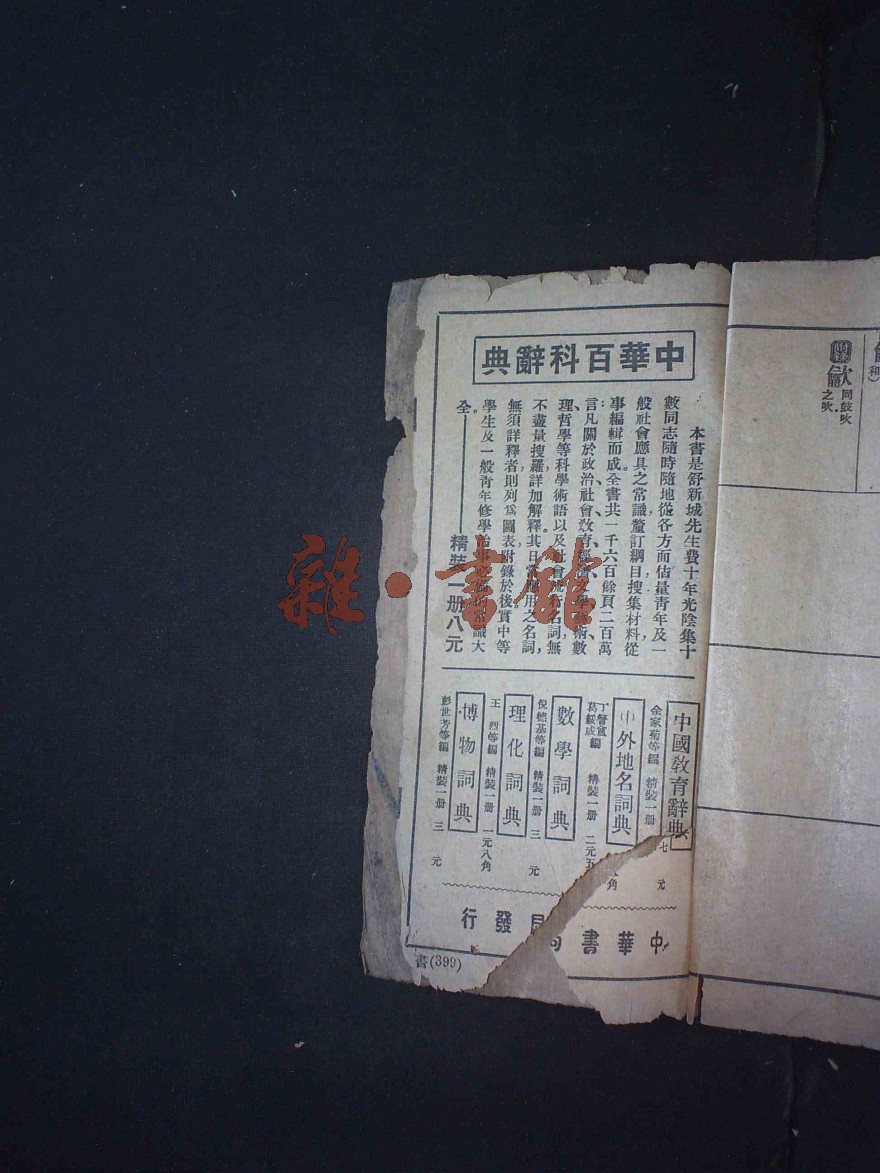 中華百科辭典
本書是舒新城先生費十年光陰集十
數同志隨時隨地從各方面估量青年及一
般社會應具之常識釐訂綱目搜集材料從
事編輯而成。全書共一千六百餘頁二百萬
言凡關於政治、社會、教育、經濟、文學、藝術、數
理、哲學等科學術語以及社會流行名詞,無
不盡量搜羅,詳加解釋。其日常應用之名詞,
無須詳釋者,則列爲圖表,附錄於後。實中等
學生及一般青年修學治事必備的常識大
全。
精裝一册八元
中國教育辭典
余家菊等編 精裝一册 七元
中外地名詞典
丁詧盦 葛綏成編 精裝一册 二元五角
數學詞典
倪德基等編 精裝一册 三元
理化詞典
王烈等編 精裝一册 一元八角
博物詞典
彭世芳等編 精裝一册 三元
中華書局發行
書(399)
和)
龡
同鼓吹
之吹。
雜·書館